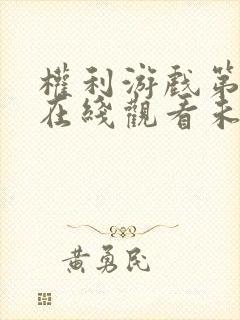 權利游戲第
在綫觀看未
黃勇民